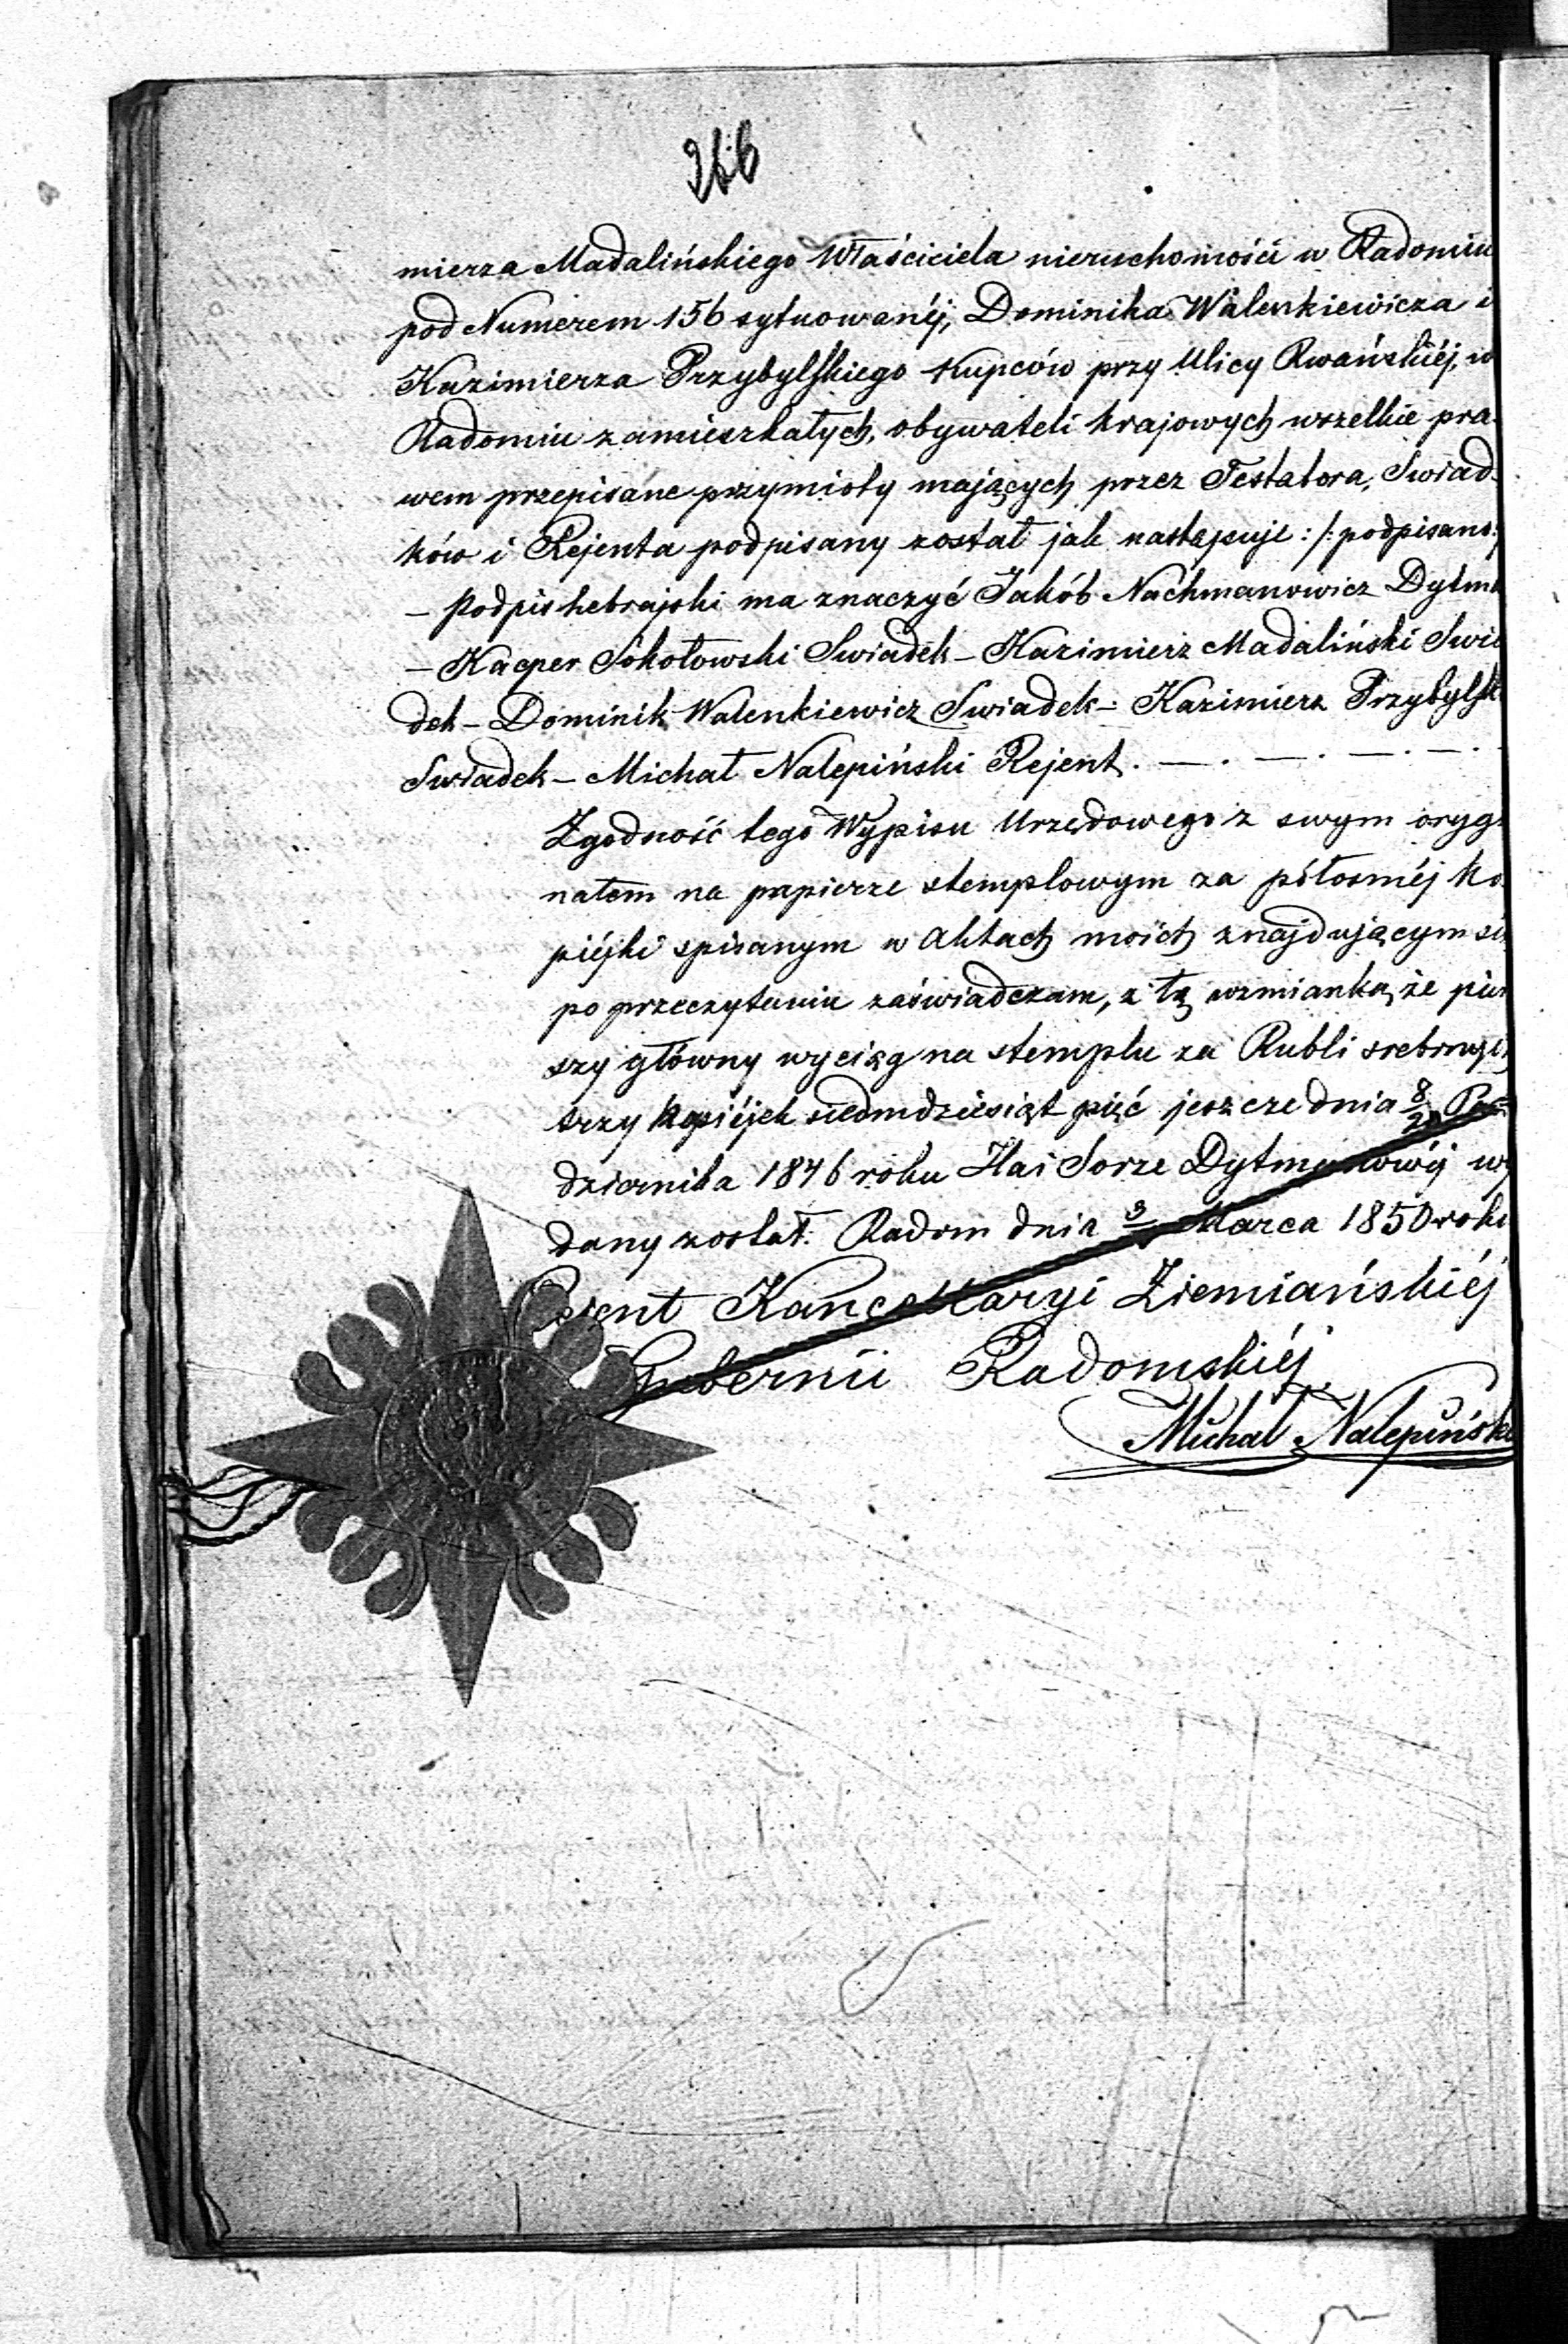 266
mierza Madalińskiego Właściciela nieruchomości w Radomiu
pod Numerem 156 sytuowanéj, Dominika Walenkiewicza i
Kazimierza Przybylskiego Kupców przy Ulicy Rwańskiéj, w
Radomiu zamieszkałych, obywateli krajowych wszelkie pra-
wem przepisane przymioty mających przez Testatora, Swiad-
ków i Rejenta podpisany został jak następuje :/: podpisano:/
– Podpis hebrajski ma znaczyć Jakób Nachmanowicz Dytm
– Kacper Sokołowski Swiadek – Kazimierz Madaliński Swia
dek – Dominik Walenkiewicz Swiadek – Kazimierz Przybylsk
Swiadek – Michał Nalepiński Rejent. — . — . — . — .
Zgodność tego Wypisu Urzędowego z swym orygi
nałem na papierze stemplowym za półosméj ko
piéjki spisanym w Aktach moich znajdującym si
po przeczytaniu zaświadczam, z tą wzmianką, że pier
szy główny wyciąg na stemplu za Rubli srebrnych
trzy kopiéjek siedmdziesiąt pięć jeszcze dnia 8/20 Paź
dziernika 1846 roku Hai Sorze Dytmanowéj wy
dany został. Radom dnia Marca 1850 roku
Rejent Kancellaryi Ziemiańskiéj
Gubernii Radomskiéj
Michał Nalepińsk